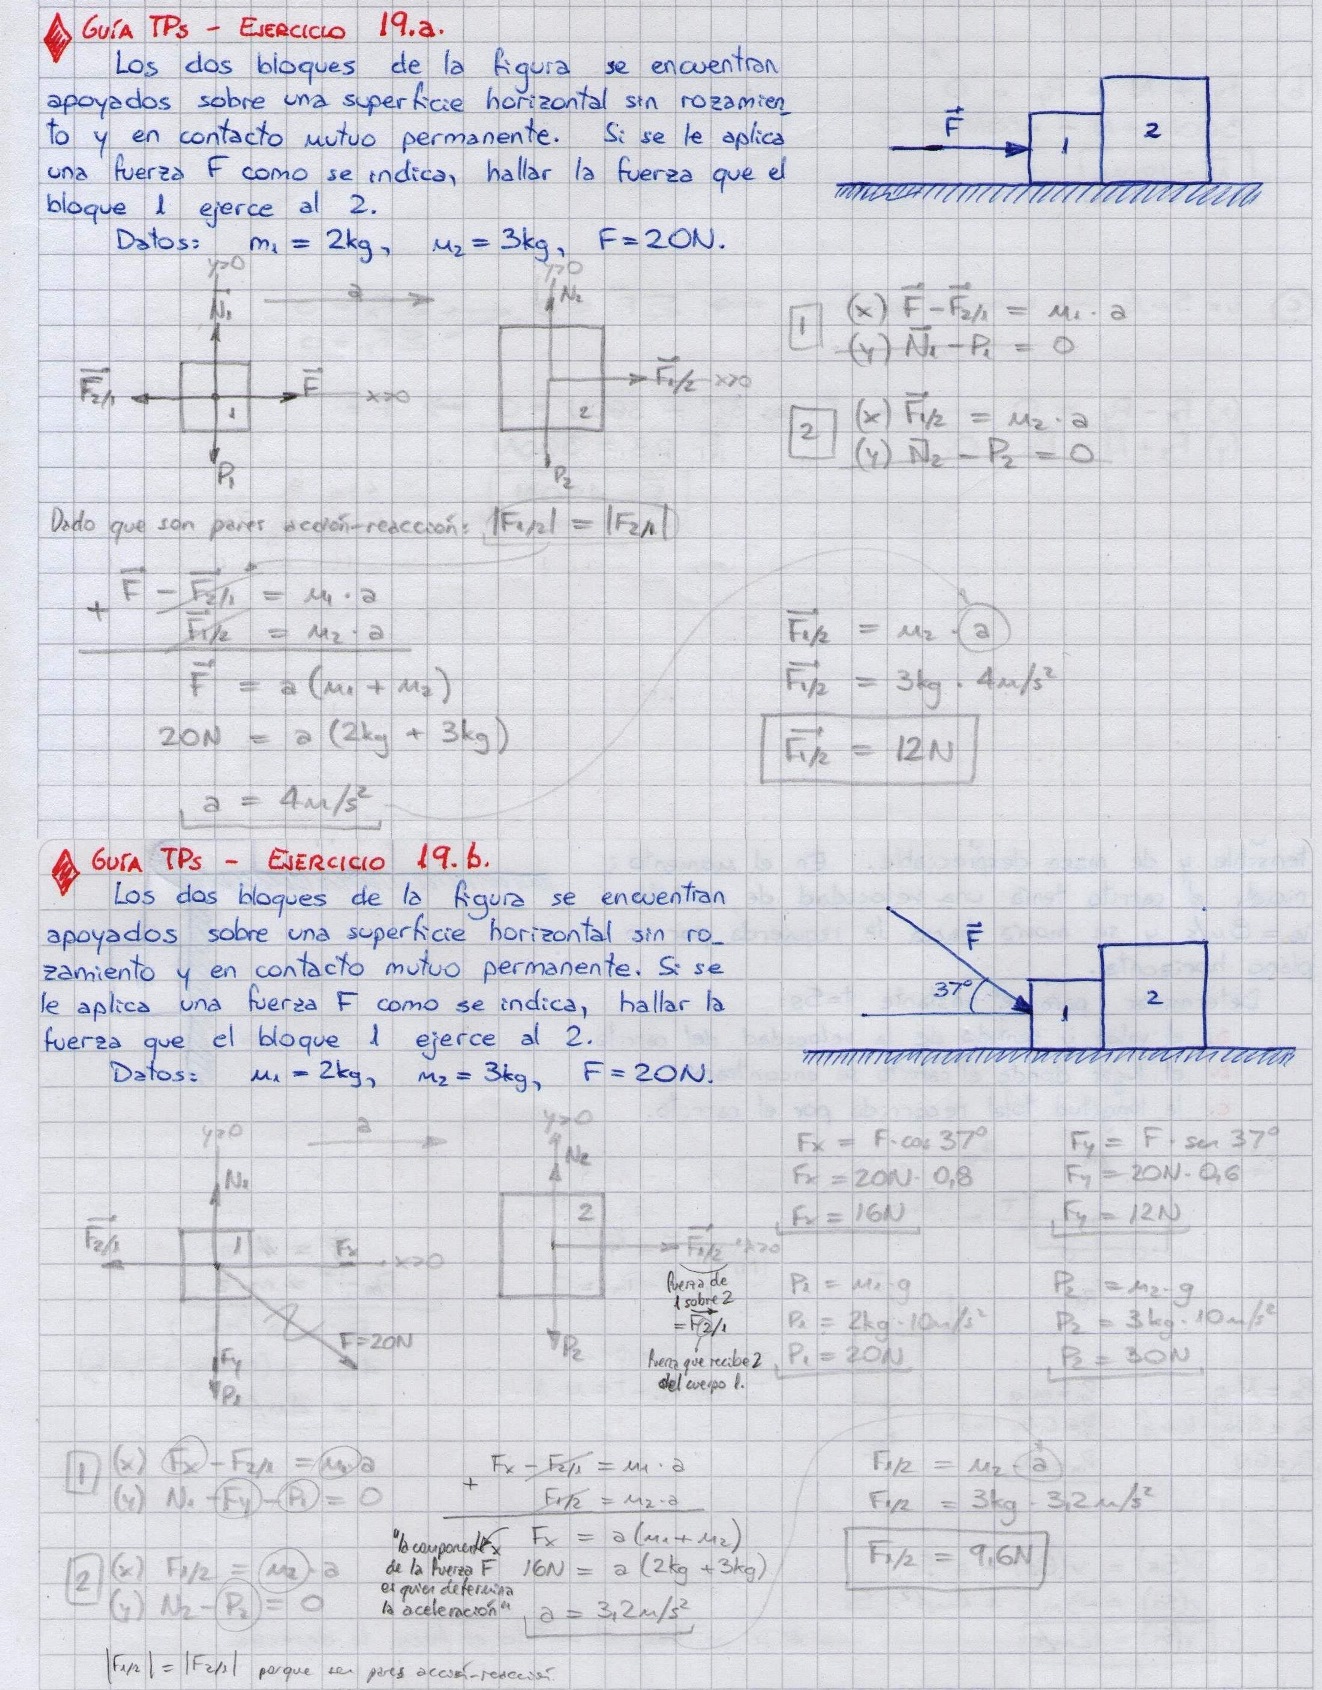 GUÍA TPs - EJERCICIO 19.a.
Los dos bloques de la figura se encuentran
apoyados sobre una superficie horizontal sin rozamien_
to y en contacto mutuo permanente. Si se le aplica
una fuerza F como se indica, hallar la fuerza que el
bloque 1 ejerce al 2.
Datos: m₁ = 2kg, m₂ = 3kg, F = 20N.
F⃗
1
2
y>0
N₁
a
F⃗2/1
F⃗
x>0
1
P₁
y>0
N₂
F⃗1/2 x>0
2
P₂
1 (x) F⃗ - F⃗2/1 = m₁ · a
(y) N⃗₁ - P₁ = 0
2 (x) F⃗1/2 = m₂ · a
(y) N⃗₂ - P₂ = 0
Dado que son pares acción-reacción: |F1/2| = |F2/1|
+ F⃗ - F⃗2/1 = m₁ · a
F⃗1/2 = m₂ · a
F⃗ = a (m₁ + m₂)
20N = a (2kg + 3kg)
a = 4m/s²
F⃗1/2 = m₂ · a
F⃗1/2 = 3kg · 4m/s²
F⃗1/2 = 12N
GUÍA TPs - EJERCICIO 19.b.
Los dos bloques de la figura se encuentran
apoyados sobre una superficie horizontal sin ro_
zamiento y en contacto mutuo permanente. Si se
le aplica una fuerza F como se indica, hallar la
fuerza que el bloque 1 ejerce al 2.
Datos: m₁ = 2kg, m₂ = 3kg, F = 20N.
F⃗
37°
1
2
y>0
a
N₁
F⃗2/1
1
Fx
x>0
F=20N
Fy
P₁
y>0
N₂
2
F⃗1/2 x>0
P₂
fuerza de
1 sobre 2
= F2/1
fuerza que recibe 2
del cuerpo 1.
Fx = F·cos 37°
Fx = 20N· 0,8
Fx = 16N
Fy = F · sen 37°
Fy = 20N· 0,6
Fy = 12N
P₁ = m₁·g
P₁ = 2kg·10m/s²
P₁ = 20N
P₂ = m₂·g
P₂ = 3kg·10m/s²
P₂ = 30N
1 (x) Fx - F2/1 = m₁·a
(y) N₁ - Fy - P₁ = 0
2 (x) F1/2 = m₂·a
(y) N₂ - P₂ = 0
|F1/2| = |F2/1| porque son pares acción-reacción
+ Fx - F2/1 = m₁ · a
F1/2 = m₂ · a
Fx = a (m₁ + m₂)
16N = a (2kg + 3kg)
a = 3,2m/s²
"la componente x
de la fuerza F
es quien determina
la aceleración"
F1/2 = m₂ · a
F1/2 = 3kg · 3,2m/s²
F1/2 = 9,6N